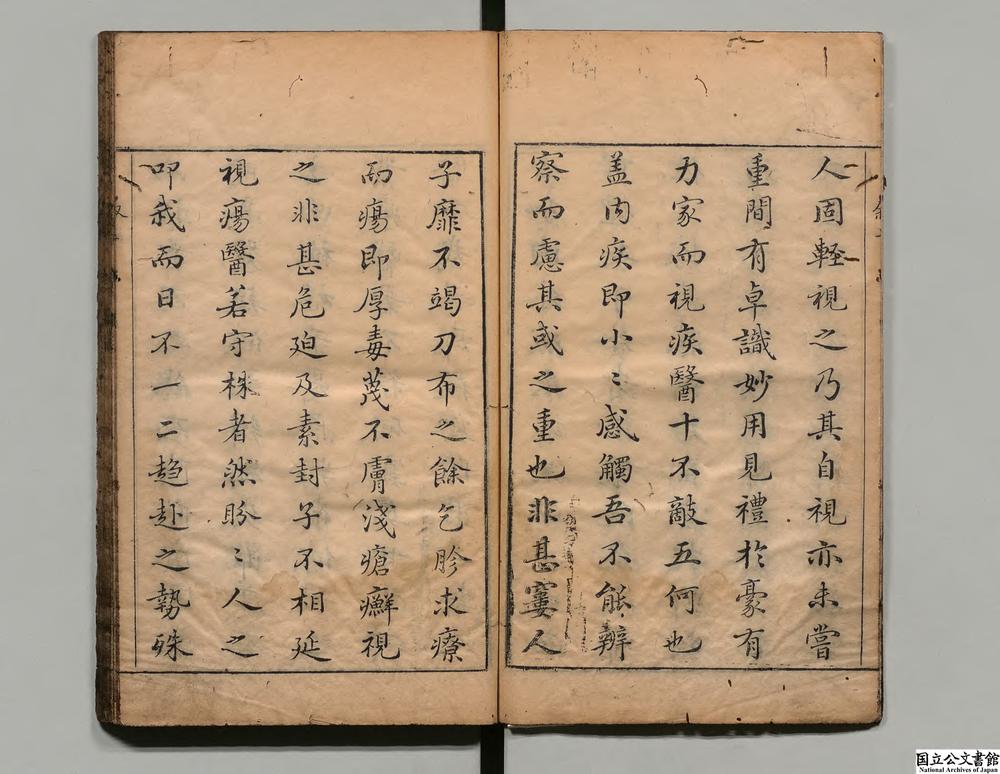 人固輕視之乃其自視亦未嘗
重間有卓識妙用見禮於豪有
力家而視疾醫十不敵五何也
盖内疾即小〻感觸吾不能辨
察而慮其或之重也非甚窶人
子靡不竭刀布之餘乞胗求療
而瘍即厚毒蔑不膚淺瘡癬視
之非甚危廹及素封子不相延
視瘍醫若守株者然盼〻人之
叩我而日不一二趋赴之勢殊
国立公文書館
National Archives of Japan